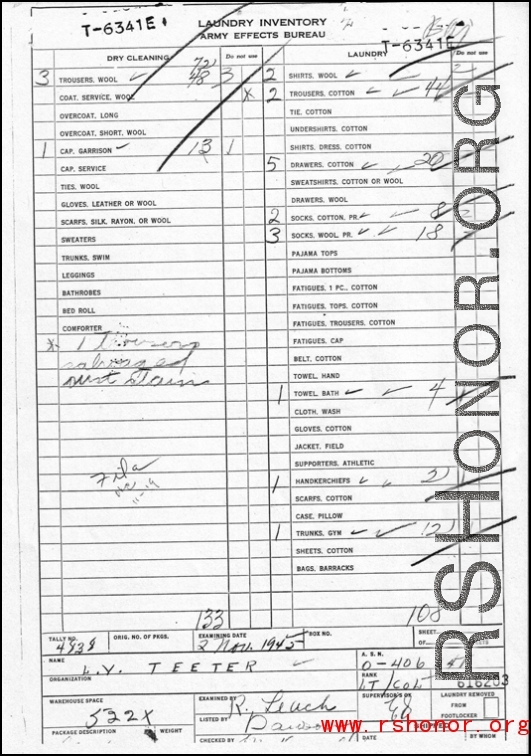 T-6341E
LAUNDRY INVENTORY
ARMY EFFECTS BUREAU
T-6341E
DRY CLEANING Do not use LAUNDRY Do not use
72
3 TROUSERS, WOOL 48 3 2 SHIRTS, WOOL
COAT, SERVICE, WOOL * 2 TROUSERS, COTTON 44
OVERCOAT, LONG TIE, COTTON
OVERCOAT, SHORT, WOOL UNDERSHIRTS, COTTON
1 CAP, GARRISON 13 1 SHIRTS, DRESS, COTTON
CAP, SERVICE 5 DRAWERS, COTTON 20
TIES, WOOL SWEATSHIRTS, COTTON OR WOOL
GLOVES, LEATHER OR WOOL DRAWERS, WOOL
SCARFS, SILK, RAYON, OR WOOL 2 SOCKS, COTTON, PR. 8
SWEATERS 3 SOCKS, WOOL, PR. 18
TRUNKS, SWIM PAJAMA TOPS
LEGGINGS PAJAMA BOTTOMS
BATHROBES FATIGUES, 1 PC., COTTON
BED ROLL FATIGUES, TOPS, COTTON
COMFORTER FATIGUES, TROUSERS, COTTON
* 1 trousers FATIGUES, CAP
salvaged BELT, COTTON
rust stains TOWEL, HAND
1 TOWEL, BATH 4
CLOTH, WASH
GLOVES, COTTON
JACKET, FIELD
SUPPORTERS, ATHLETIC
1 HANDKERCHIEFS 2
SCARFS, COTTON
CASE, PILLOW
1 TRUNKS, GYM 12
SHEETS, COTTON
BAGS, BARRACKS
133 108
TALLY NO. ORIG. NO. OF PKGS. EXAMINING DATE BOX NO. SHEET
2 Nov. 1945 OF
NAME A. S. N.
L.V. TEETER O-406
ORGANIZATION RANK
LT/COL 616203
WAREHOUSE SPACE EXAMINED BY SUPERVISOR'S OK LAUNDRY REMOVED
522X R. Leach FROM
LISTED BY FOOTLOCKER
PACKAGE DESCRIPTION WEIGHT CHECKED BY BY WHOM
RSHONOR.ORG
www.rshonor.org